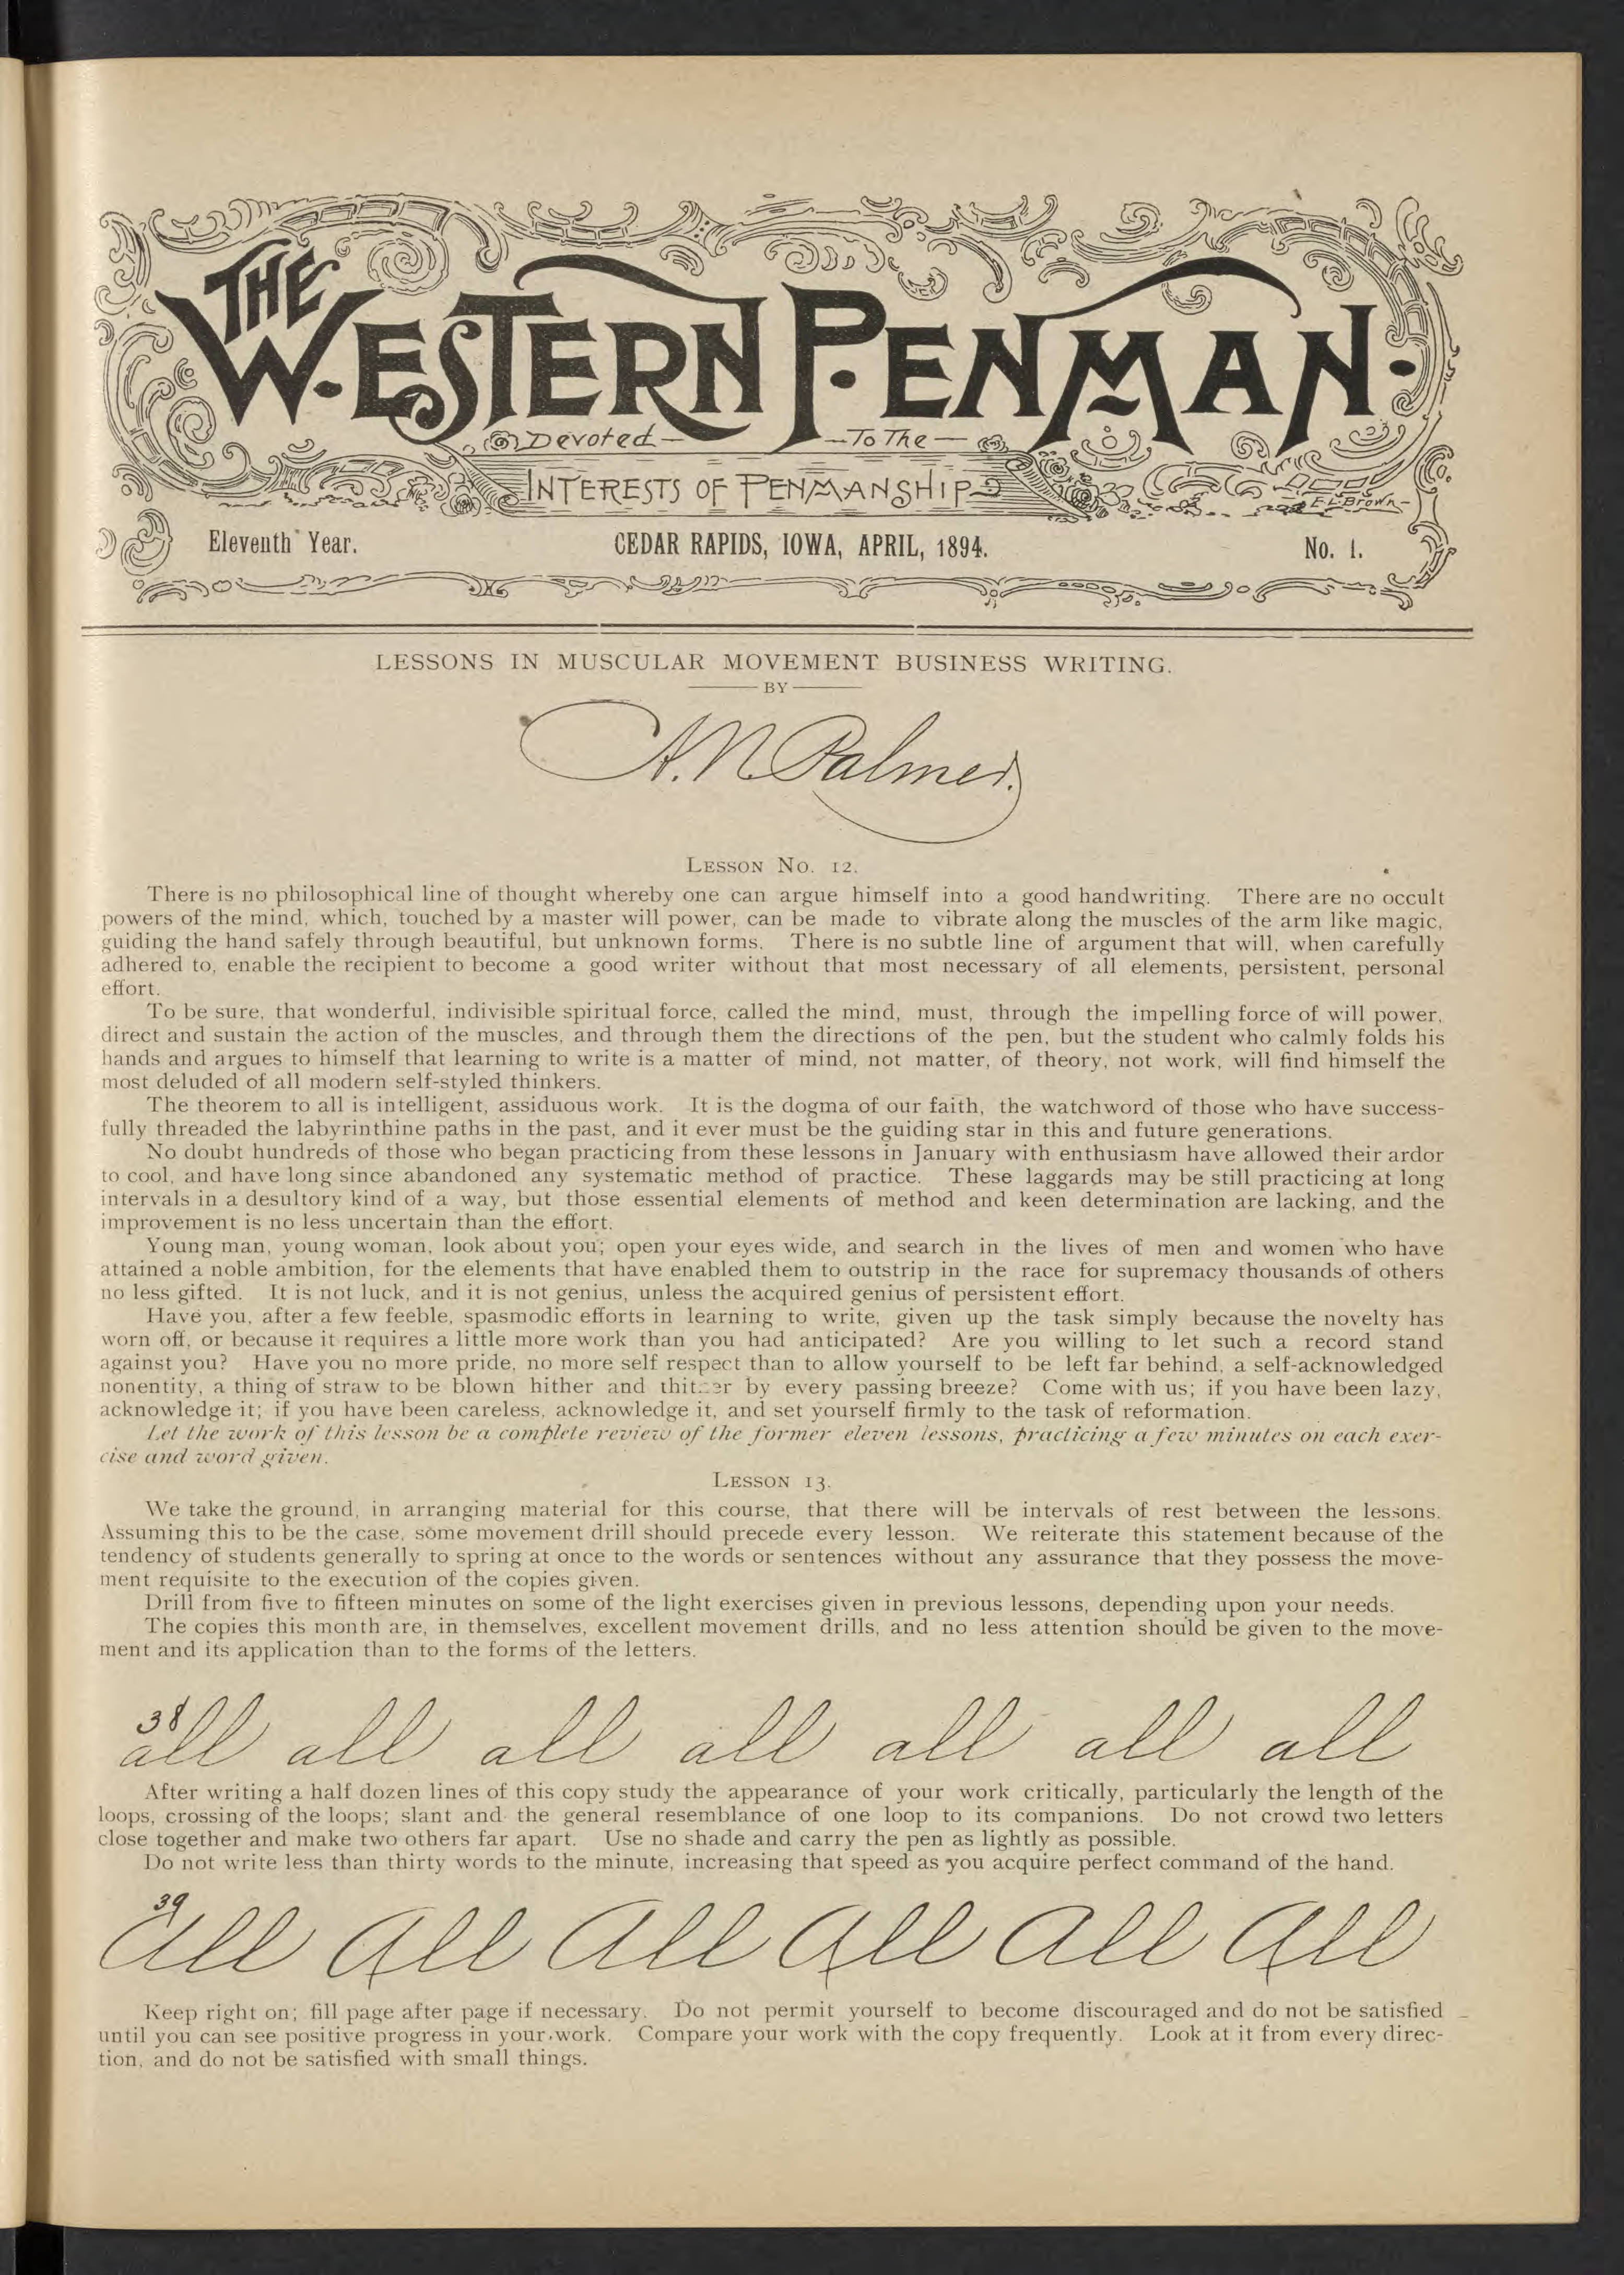 THE
WESTERN PENMAN
Devoted To The
INTERESTS OF PENMANSHIP
E.L. Brown
Eleventh Year. CEDAR RAPIDS, IOWA, APRIL, 1894. No. 1.
LESSONS IN MUSCULAR MOVEMENT BUSINESS WRITING.
BY
A.N. Palmer.
LESSON No. 12.
There is no philosophical line of thought whereby one can argue himself into a good handwriting. There are no occult
powers of the mind, which, touched by a master will power, can be made to vibrate along the muscles of the arm like magic,
guiding the hand safely through beautiful, but unknown forms. There is no subtle line of argument that will, when carefully
adhered to, enable the recipient to become a good writer without that most necessary of all elements, persistent, personal
effort.
To be sure, that wonderful, indivisible spiritual force, called the mind, must, through the impelling force of will power,
direct and sustain the action of the muscles, and through them the directions of the pen, but the student who calmly folds his
hands and argues to himself that learning to write is a matter of mind, not matter, of theory, not work, will find himself the
most deluded of all modern self-styled thinkers.
The theorem to all is intelligent, assiduous work. It is the dogma of our faith, the watchword of those who have success-
fully threaded the labyrinthine paths in the past, and it ever must be the guiding star in this and future generations.
No doubt hundreds of those who began practicing from these lessons in January with enthusiasm have allowed their ardor
to cool, and have long since abandoned any systematic method of practice. These laggards may be still practicing at long
intervals in a desultory kind of a way, but those essential elements of method and keen determination are lacking, and the
improvement is no less uncertain than the effort.
Young man, young woman, look about you; open your eyes wide, and search in the lives of men and women who have
attained a noble ambition, for the elements that have enabled them to outstrip in the race for supremacy thousands of others
no less gifted. It is not luck, and it is not genius, unless the acquired genius of persistent effort.
Have you, after a few feeble, spasmodic efforts in learning to write, given up the task simply because the novelty has
worn off, or because it requires a little more work than you had anticipated? Are you willing to let such a record stand
against you? Have you no more pride, no more self respect than to allow yourself to be left far behind, a self-acknowledged
nonentity, a thing of straw to be blown hither and thither by every passing breeze? Come with us; if you have been lazy,
acknowledge it; if you have been careless, acknowledge it, and set yourself firmly to the task of reformation.
Let the work of this lesson be a complete review of the former eleven lessons, practicing a few minutes on each exer-
cise and word given.
LESSON 13.
We take the ground, in arranging material for this course, that there will be intervals of rest between the lessons.
Assuming this to be the case, some movement drill should precede every lesson. We reiterate this statement because of the
tendency of students generally to spring at once to the words or sentences without any assurance that they possess the move-
ment requisite to the execution of the copies given.
Drill from five to fifteen minutes on some of the light exercises given in previous lessons, depending upon your needs.
The copies this month are, in themselves, excellent movement drills, and no less attention should be given to the move-
ment and its application than to the forms of the letters.
38
all all all all all all all
After writing a half dozen lines of this copy study the appearance of your work critically, particularly the length of the
loops, crossing of the loops; slant and the general resemblance of one loop to its companions. Do not crowd two letters
close together and make two others far apart. Use no shade and carry the pen as lightly as possible.
Do not write less than thirty words to the minute, increasing that speed as you acquire perfect command of the hand.
39
All All All All All All
Keep right on; fill page after page if necessary. Do not permit yourself to become discouraged and do not be satisfied
until you can see positive progress in your work. Compare your work with the copy frequently. Look at it from every direc-
tion, and do not be satisfied with small things.